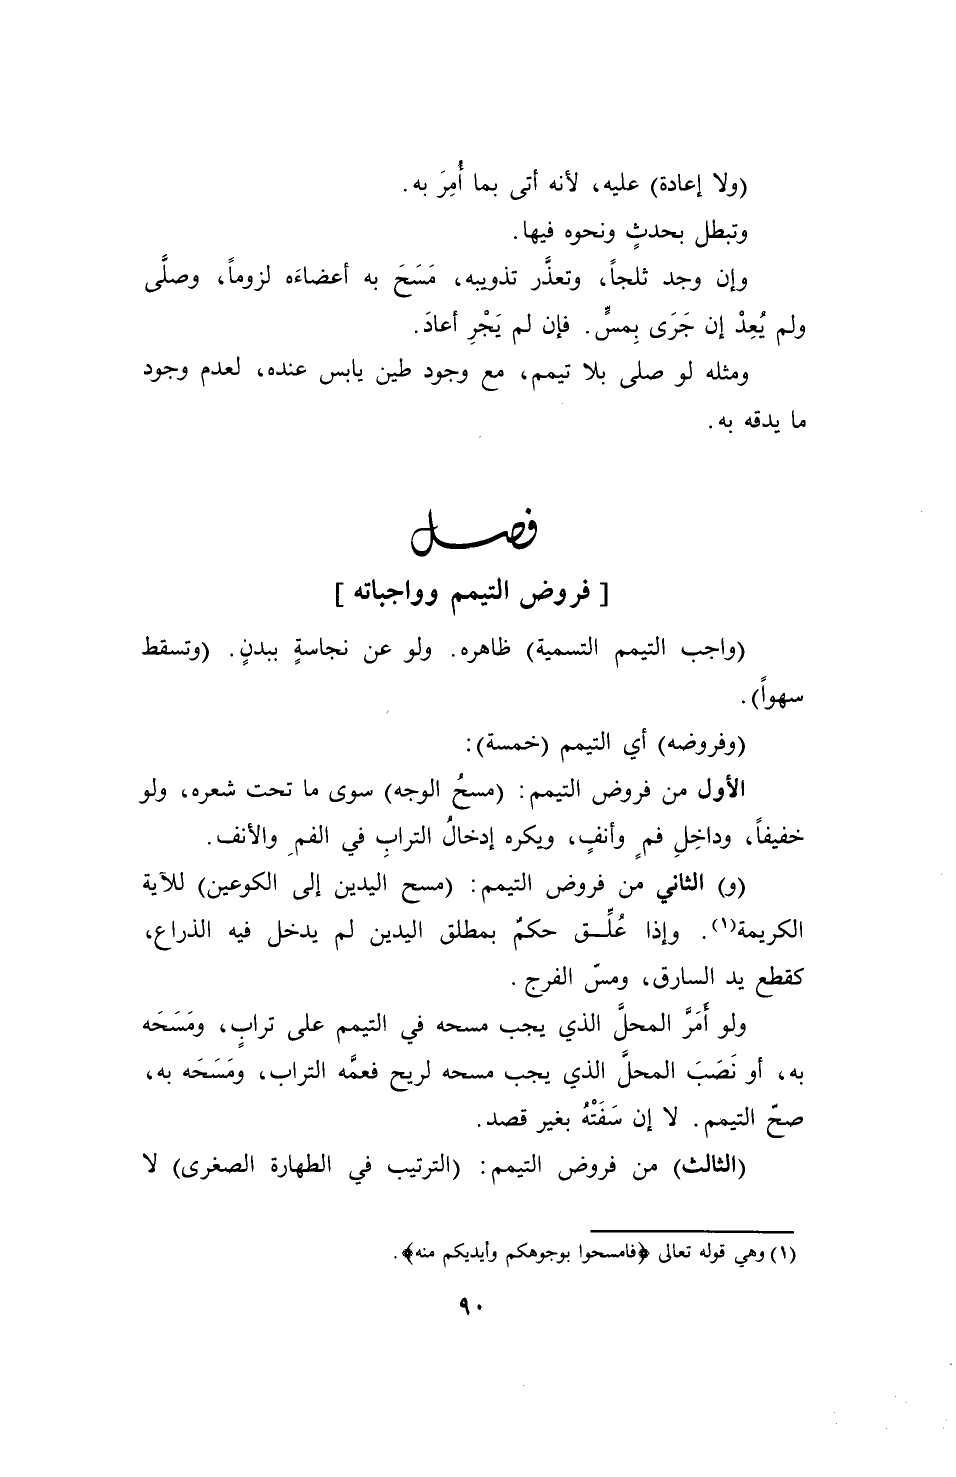 (ولا إعادة) عليه، لأنه أتى بما أُمِرَ به.
وتبطل بحدثٍ ونحوه فيها.
وإن وجد ثلجاً، وتعذَّر تذويبه، مَسَحَ به أعضاءَه لزوماً، وصلَّى
ولم يُعِدْ إن جَرَى بِمسٍّ. فإن لم يَجْرِ أعادَ.
ومثله لو صلى بلا تيمم، مع وجود طين يابس عنده، لعدم وجود
ما يدقه به.
فصل
[ فروض التيمم وواجباته ]
(واجب التيمم التسمية) ظاهره. ولو عن نجاسةٍ ببدنٍ. (وتسقط
سهواً).
(وفروضه) أي التيمم (خمسة):
الأول من فروض التيمم: (مسحُ الوجه) سوى ما تحت شعره، ولو
خفيفاً، وداخِلِ فمٍ وأنفٍ، ويكره إدخالُ الترابِ في الفمِ والأنف.
(و) الثاني من فروض التيمم: (مسح اليدين إلى الكوعين) للآية
الكريمة(١). وإذا عُلِّـق حكمٌ بمطلق اليدين لم يدخل فيه الذراع،
كقطع يد السارق، ومسّ الفرج.
ولو أَمَرَّ المحلَّ الذي يجب مسحه في التيمم على ترابٍ، ومَسَحَه
به، أو نَصَبَ المحلَّ الذي يجب مسحه لريح فعمَّه التراب، ومَسَحَه به،
صحّ التيمم. لا إن سَفَتْهُ بغير قصد.
(الثالث) من فروض التيمم: (الترتيب في الطهارة الصغرى) لا
(١) وهي قوله تعالى ﴿فامسحوا بوجوهكم وأيديكم منه﴾.
٩٠